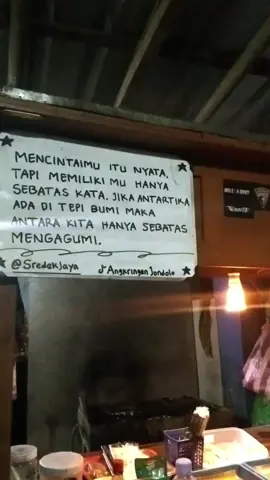 MENCINTAIMU ITU NYATA,
TAPI MEMILIKI MU HANYA
SEBATAS KATA. JIKA ANTARTIKA
ADA DI TEPI BUMI MAKA
ANTARA KITA HANYA SEBATAS
MENGAGUMI.
@SredekJaya Angkringan Jondolo